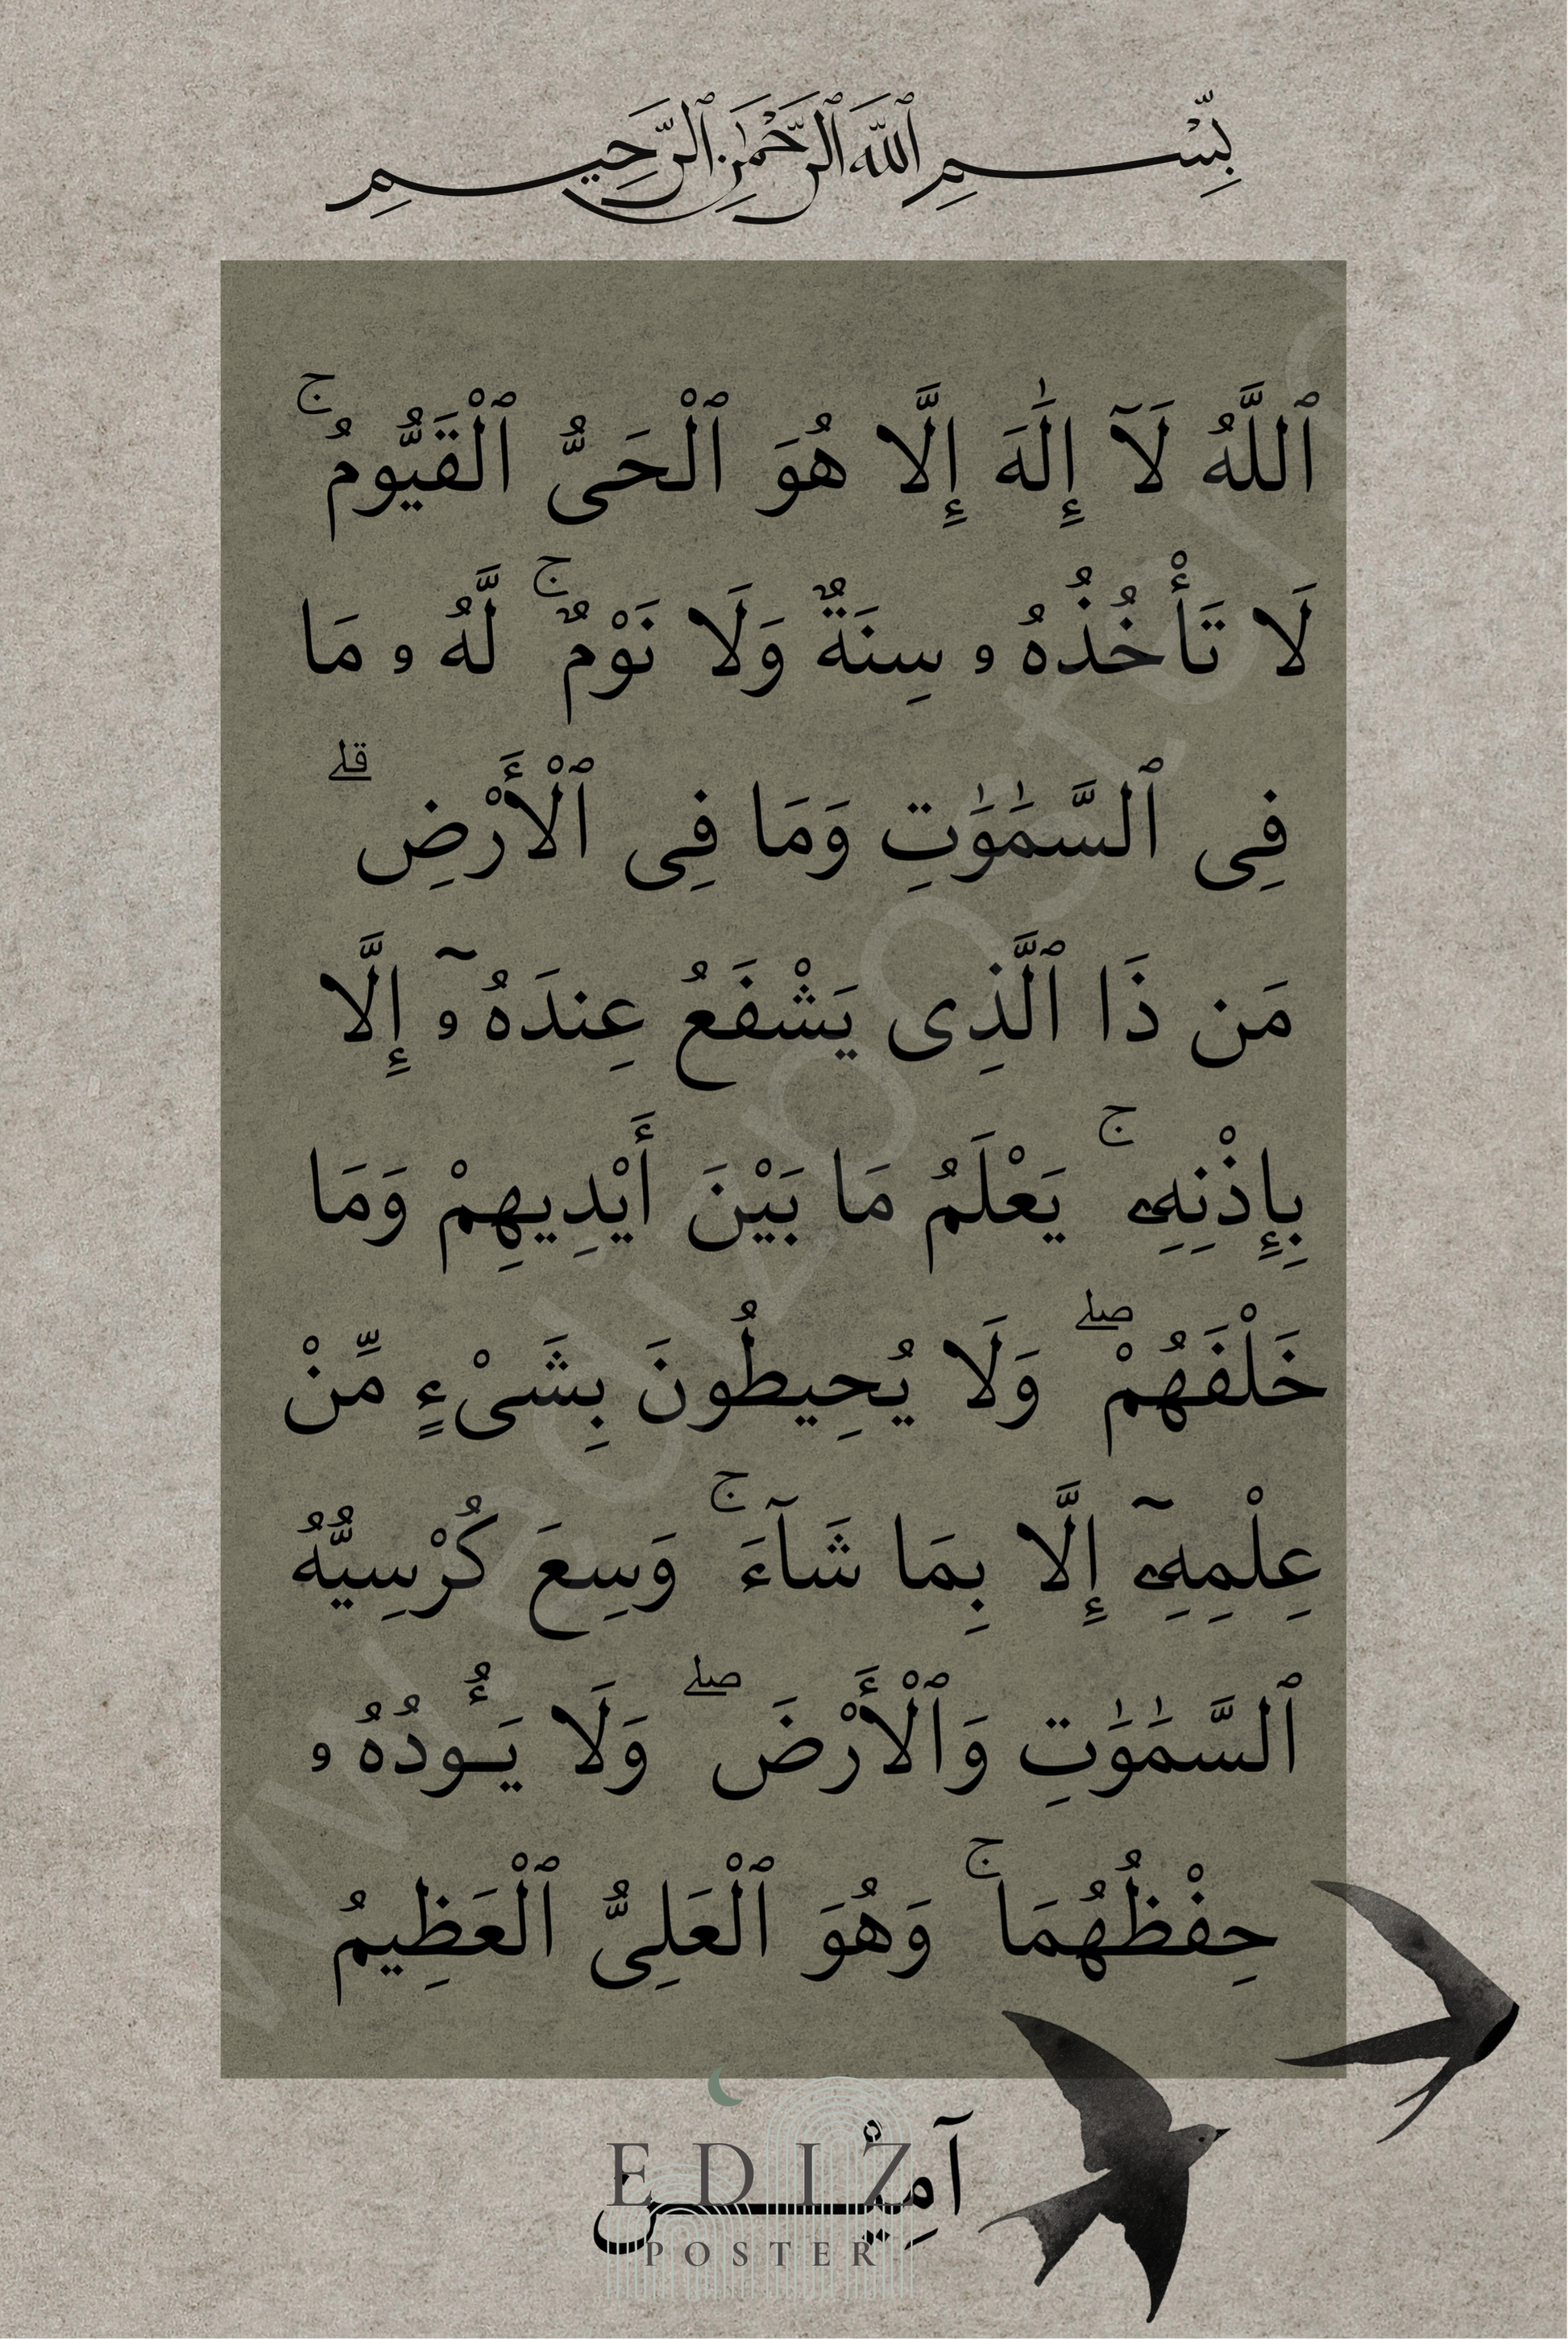 بِّسْمِ ٱللَّهِ ٱلرَّحْمَٰنِ ٱلرَّحِيمِ
ٱللَّهُ لَآ إِلَٰهَ إِلَّا هُوَ ٱلْحَىُّ ٱلْقَيُّومُ ۚ
لَا تَأْخُذُهُۥ سِنَةٌ وَلَا نَوْمٌ ۚ لَّهُۥ مَا
فِى ٱلسَّمَٰوَٰتِ وَمَا فِى ٱلْأَرْضِ ۗ
مَن ذَا ٱلَّذِى يَشْفَعُ عِندَهُۥٓ إِلَّا
بِإِذْنِهِۦ ۚ يَعْلَمُ مَا بَيْنَ أَيْدِيهِمْ وَمَا
خَلْفَهُمْ ۖ وَلَا يُحِيطُونَ بِشَىْءٍ مِّنْ
عِلْمِهِۦٓ إِلَّا بِمَا شَآءَ ۚ وَسِعَ كُرْسِيُّهُ
ٱلسَّمَٰوَٰتِ وَٱلْأَرْضَ ۖ وَلَا يَـُٔودُهُۥ
حِفْظُهُمَا ۚ وَهُوَ ٱلْعَلِىُّ ٱلْعَظِيمُ
آمِيْن
EDIZ
POSTER